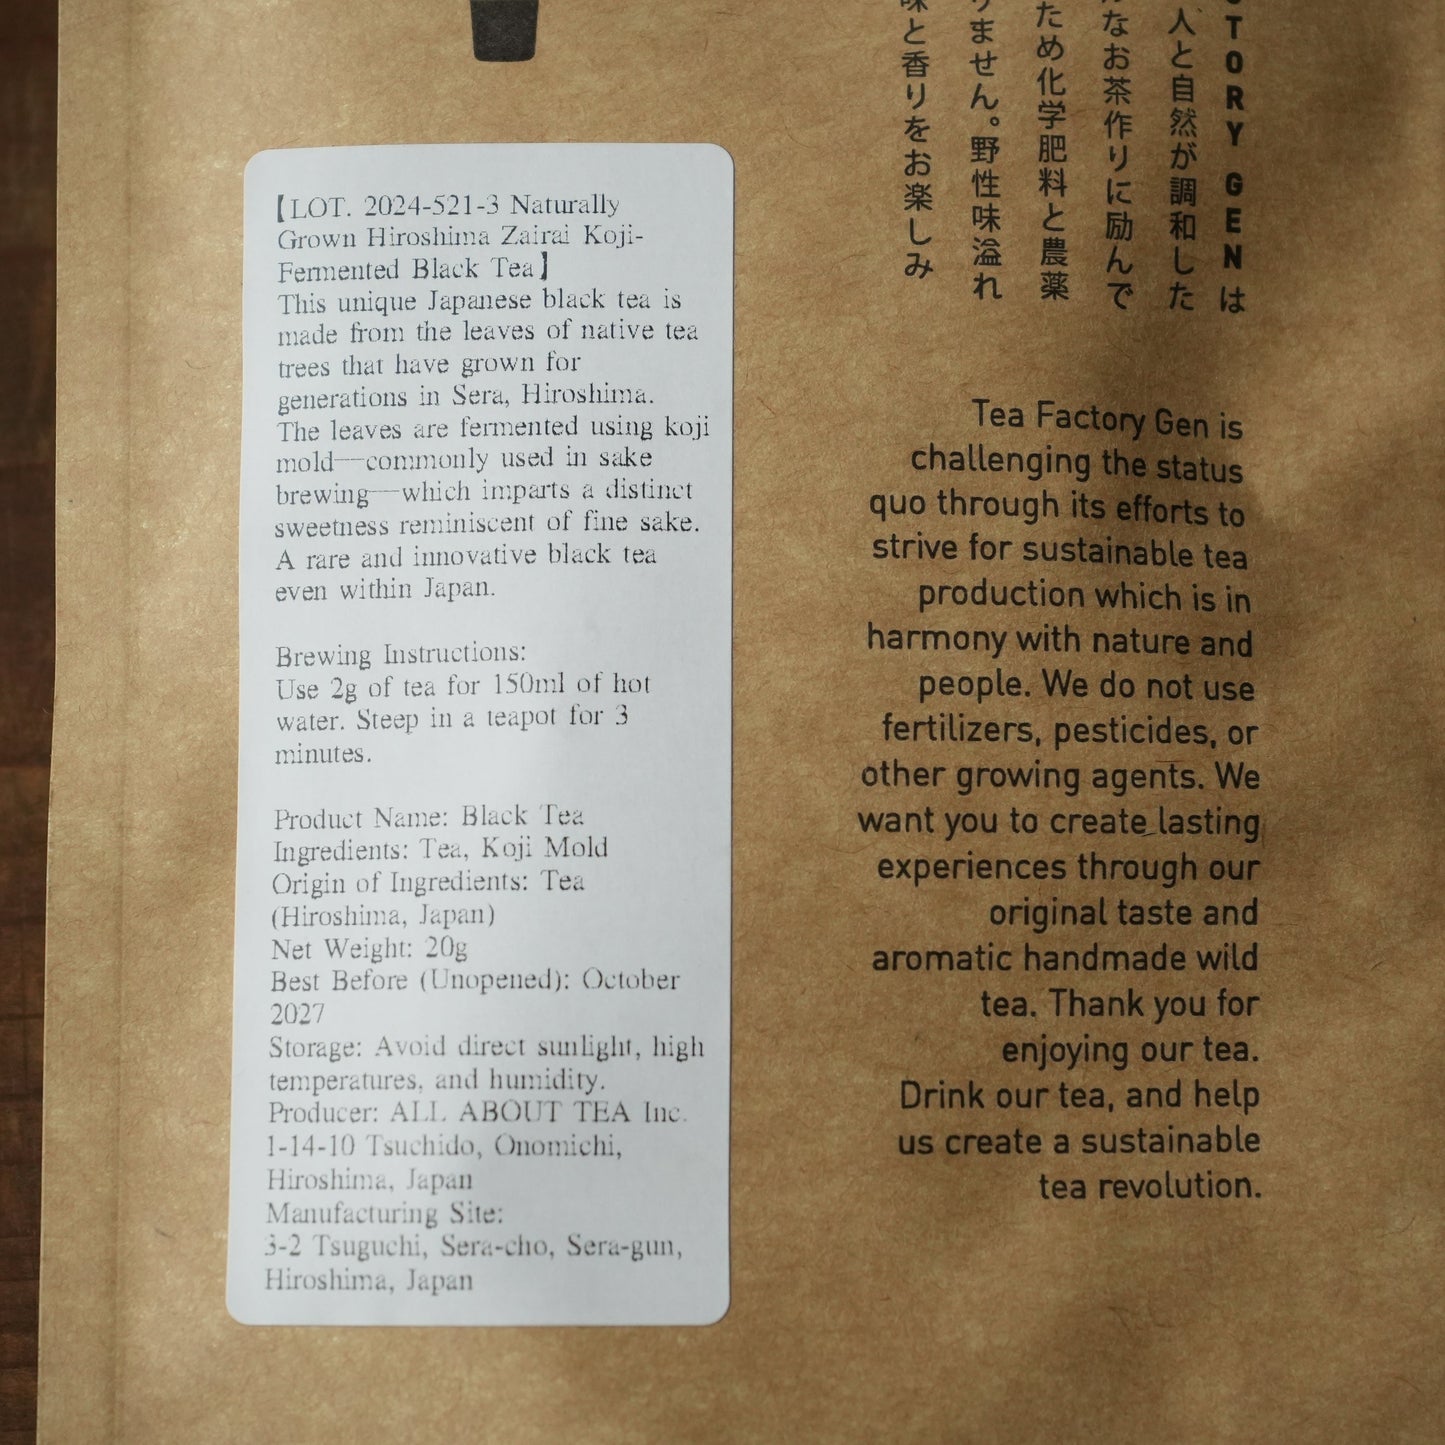 【LOT. 2024-521-3 Naturally
Grown Hiroshima Zairai Koji-
Fermented Black Tea】
This unique Japanese black tea is
made from the leaves of native tea
trees that have grown for
generations in Sera, Hiroshima.
The leaves are fermented using koji
mold—commonly used in sake
brewing—which imparts a distinct
sweetness reminiscent of fine sake.
A rare and innovative black tea
even within Japan.
Brewing Instructions:
Use 2g of tea for 150ml of hot
water. Steep in a teapot for 3
minutes.
Product Name: Black Tea
Ingredients: Tea, Koji Mold
Origin of Ingredients: Tea
(Hiroshima, Japan)
Net Weight: 20g
Best Before (Unopened): October
2027
Storage: Avoid direct sunlight, high
temperatures, and humidity.
Producer: ALL ABOUT TEA Inc.
1-14-10 Tsuchido, Onomichi,
Hiroshima, Japan
Manufacturing Site:
3-2 Tsuguchi, Sera-cho, Sera-gun,
Hiroshima, Japan
TORY GEN は
人と自然が調和した
なお茶作りに励んで
ため化学肥料と農薬
ません。野性味溢れ
味と香りをお楽しみ
Tea Factory Gen is
challenging the status
quo through its efforts to
strive for sustainable tea
production which is in
harmony with nature and
people. We do not use
fertilizers, pesticides, or
other growing agents. We
want you to create lasting
experiences through our
original taste and
aromatic handmade wild
tea. Thank you for
enjoying our tea.
Drink our tea, and help
us create a sustainable
tea revolution.